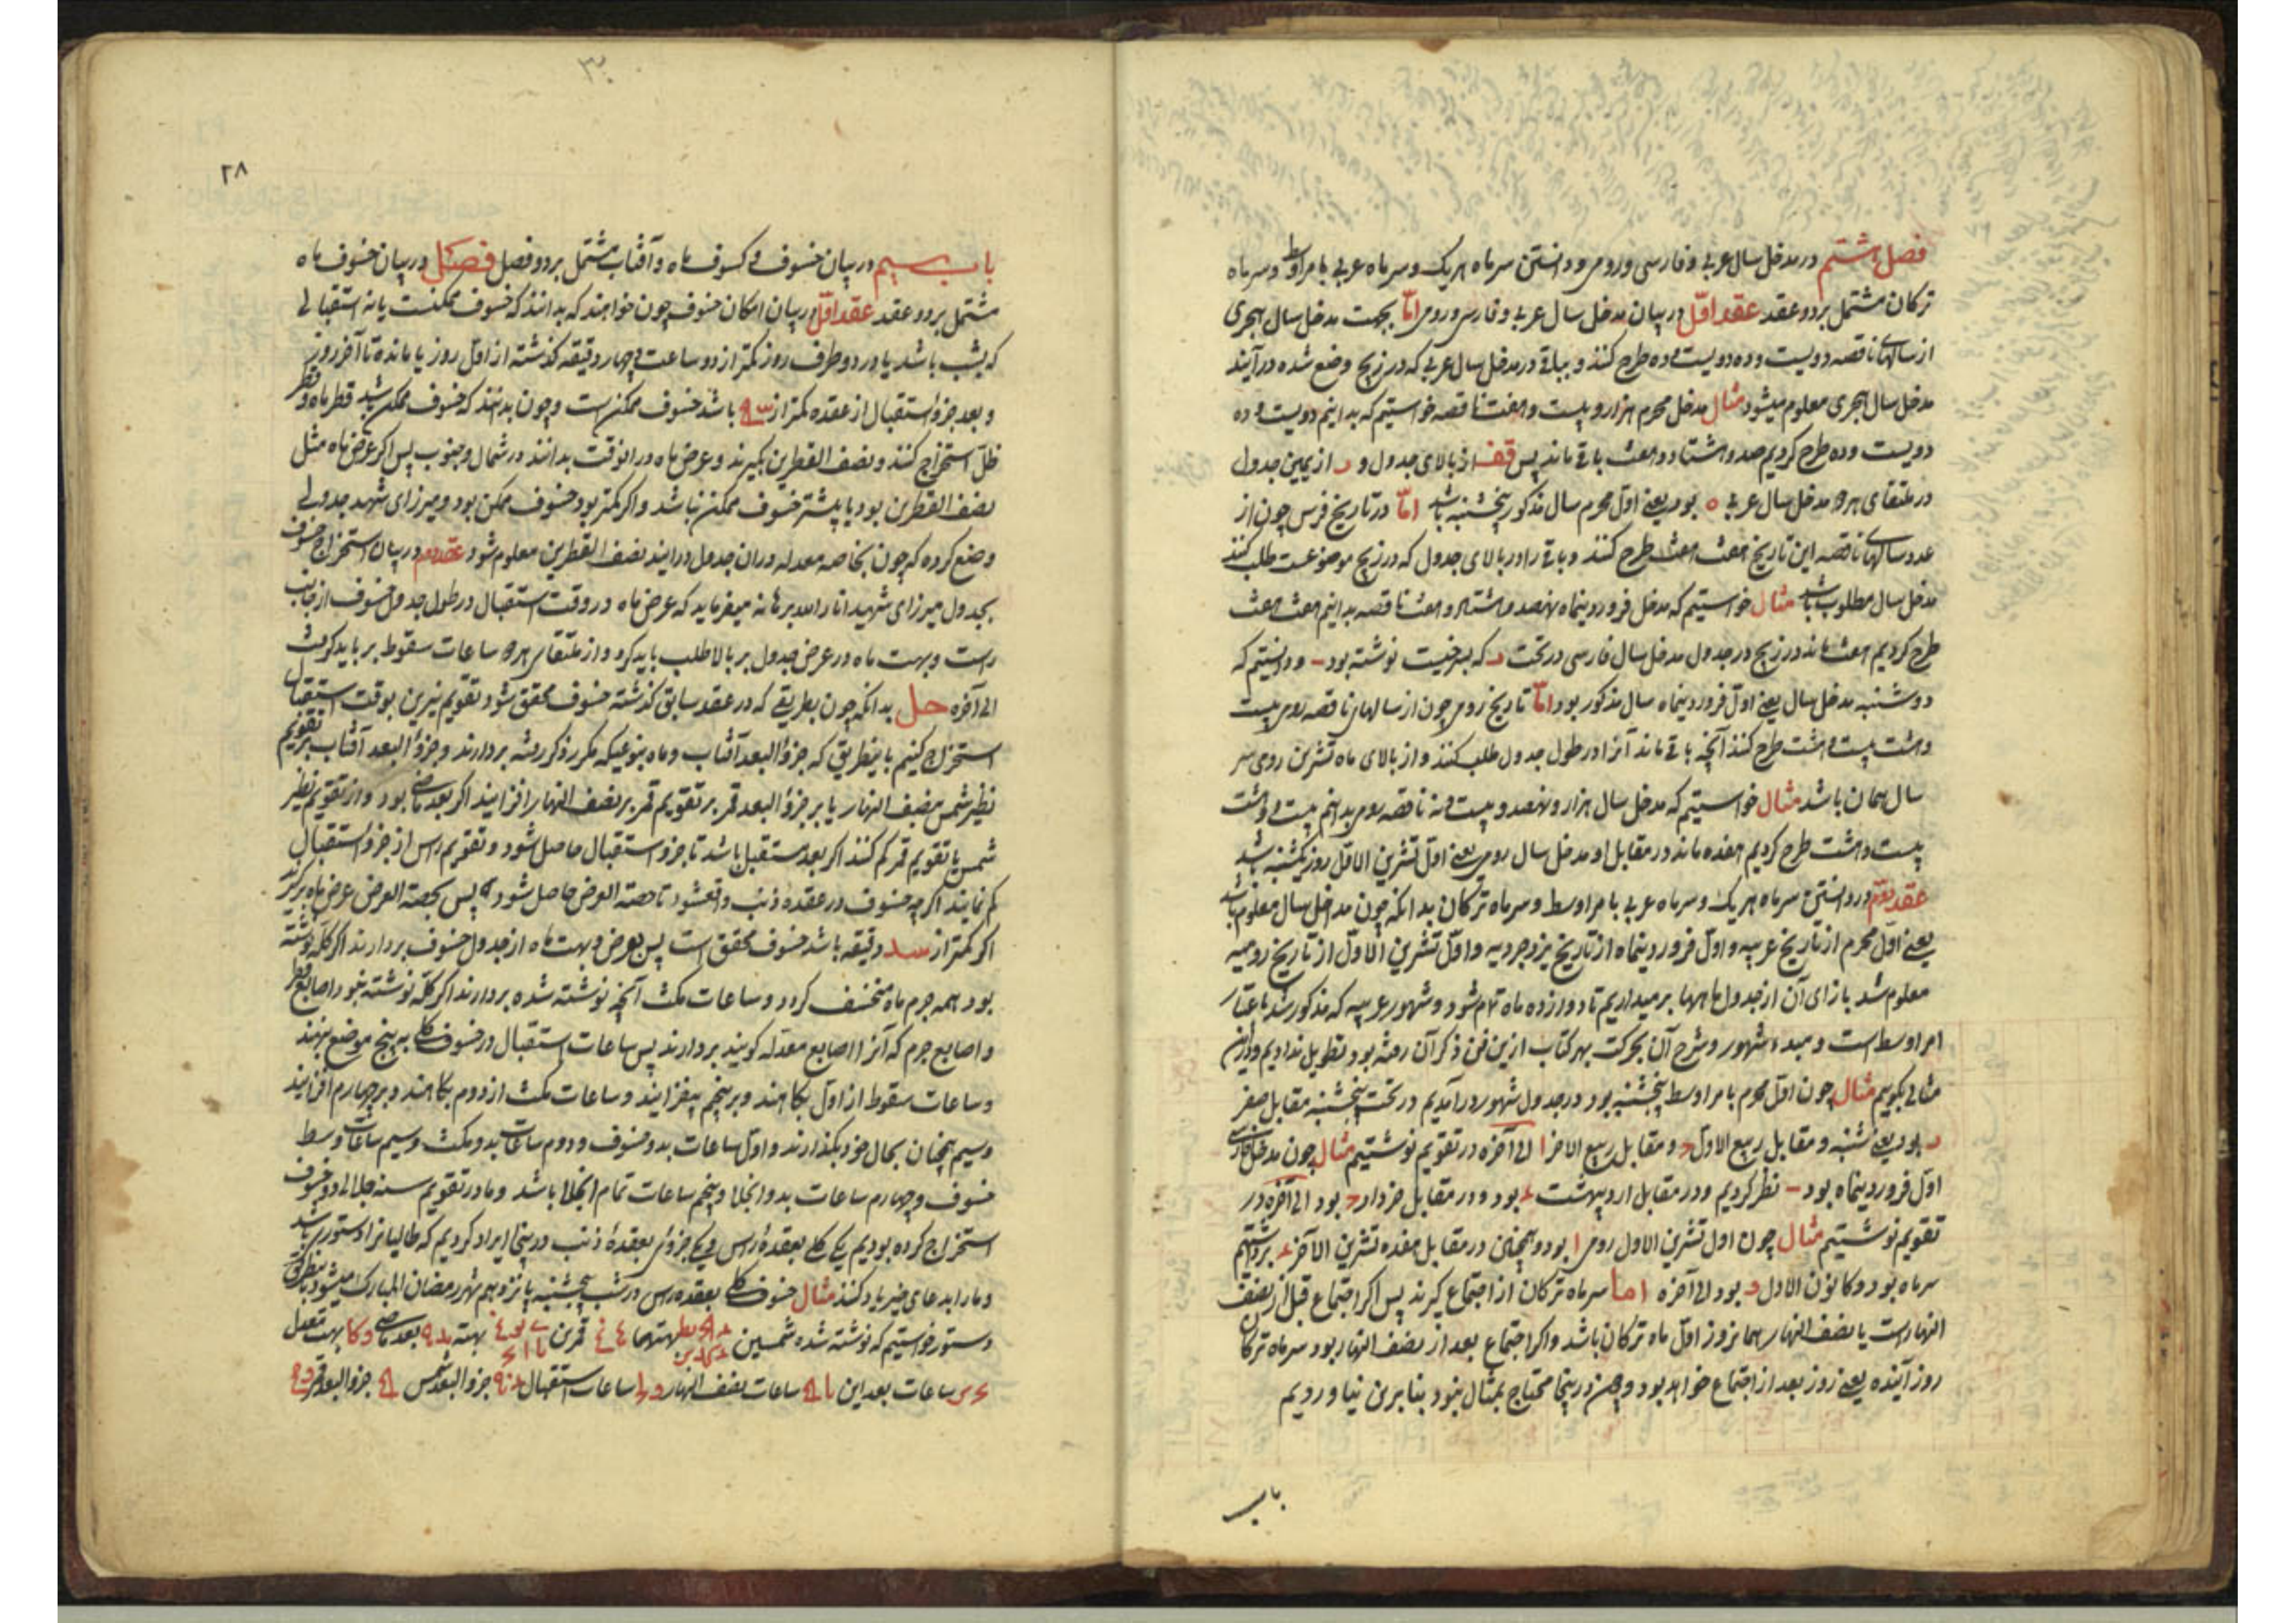 فصل هشتم در مدخل سال عربی و فارسی و رومی و دانستن سر ماه هر یک و سر ماه عربی بامر اوسط و سر ماه
ترکان مشتمل بر دو عقد عقد اوّل در بیان مدخل سال عربی و فارسی و رومی امّا بجهت مدخل سال هجری
از سالهای ناقصه دویست و ده دویست و ده طرح کنند و بباقی در مدخل سال عربی که در زیج وضع شده درآیند
مدخل سال هجری معلوم میشود مثال مدخل محرم هزار و بیست و هفت ناقصه خواستیم که بدانیم دویست و ده
دویست و ده طرح کردیم صد و هشتاد و هفت باقی ماند پس قفز از بالای جدول و از یمین جدول
در ملتقای هر دو مدخل سال عربی ه بود یعنی اوّل محرم سال مذکور پنجشنبه باشد امّا در تاریخ فرس چون از
عدد سالهای ناقصه این تاریخ هفت هفت طرح کنند و باقی را در بالای جدول که در زیج موضوعست طلب کنند
مدخل سال مطلوب باشد مثال خواستیم که مدخل فروردینماه نهصد و هشتاد و هفت ناقصه بدانیم هفت هفت
طرح کردیم هفت ماند در زیج در جدول مدخل سال فارسی در تحت که بسرخیست نوشته بود و دانستیم که
دوشنبه مدخل سال یعنی اوّل فروردینماه سال مذکور بود امّا تاریخ رومی چون از سالهای ناقصه رومی بیست
و هشت بیست و هشت طرح کنند آنچه باقی ماند آنرا در طول جدول طلب کنند و از بالای ماه تشرین رومی سر
سال همان باشد مثال خواستیم که مدخل سال هزار و نهصد و بیست و نه ناقصه رومی بدانیم بیست و هشت
بیست و هشت طرح کردیم هفده ماند در مقابل او مدخل سال رومی یعنی اوّل تشرین الاوّل روز یکشنبه باشد
عقد دوم در دانستن سر ماه هر یک و سر ماه عربی بامر اوسط و سر ماه ترکان بدانکه چون مداخل سال معلوم باشد
یعنی اوّل محرم از تاریخ عربیه و اوّل فروردینماه از تاریخ یزدجردیه و اوّل تشرین الاوّل از تاریخ رومیه
معلوم شد بازای آن از جدول ماهها برمیداریم تا دوازده ماه تمام شود و شهور عربیه که مذکور شد باعتبار
امر اوسط است و مبدء شهور و شرح آن بحرکت بهر کتاب ازین فن ذکر آن رفته بود تطویل ندادیم
مثالی بکوییم مثال چون اوّل محرم بامر اوسط پنجشنبه بود در جدول شهور درآمدیم در تحت پنجشنبه مقابل صفر
بود یعنی شنبه و مقابل ربیع الاوّل و مقابل ربیع الاخر الی آخره در تقویم نوشتیم مثال چون مدخل
اوّل فروردینماه بود نظر کردیم و در مقابل اردیبهشت بود و در مقابل خرداد بود الی آخره در
تقویم نوشتیم مثال چون اول تشرین الاول رومی ا بود و همچنان در مقابل هفده تشرین الآخر برداشتیم
سر ماه بود و کانون الاول بود الی آخره اما سر ماه ترکان از اجتماع کیرند پس اکر اجتماع قبل از نصف
النهارست یا نصف النهار همانروز اوّل ماه ترکان باشد و اکر اجتماع بعد از نصف النهار بود سر ماه ترکان
روز آینده یعنی روز بعد از اجتماع خواهد بود و چون درینجا محتاج بمثال نبود بنابرین نیاوردیم
باب
٣٠
٢٨
باب سیم در بیان خسوف و کسوف ماه و آفتاب مشتمل بر دو فصل فصل در بیان خسوف ماه
مشتمل بر دو عقد عقد اوّل در بیان امکان خسوف چون خواهند که بدانند که خسوف ممکنست یا نه استقبالی
که بشب باشد یا در دو طرف روز کمتر از دو ساعت و چهار دقیقه کذشته از اوّل روز یا مانده تا آخر روز
و بعد جزو استقبال از عقده کمتر از باشد خسوف ممکن است و چون بدانند که خسوف ممکن باشد قطر ماه و قطر
ظلّ استخراج کنند و نصف القطرین بکیرند و عرض ماه در انوقت بدانند در شمال و جنوب پس اکر عرض ماه مثل
نصف القطرین بود یا بیشتر خسوف ممکن نباشد و اکر کمتر بود خسوف ممکن بود و میرزای شهید جدولی
وضع کرده که چون بخاصه معدله در ان جدول درایند نصف القطرین معلوم شود عقد دوم در بیان استخراج خسوف
بجدول میرزای شهید انار الله برهانه میفرماید که عرض ماه در وقت استقبال در طول جدول خسوف از جانب
راست و بهت ماه در عرض جدول بر بالا طلب باید کرد و از ملتقای هر دو ساعات سقوط بر باید کرفت
الی آخره حل بدانکه چون بطریقی که در عقد سابق کذشته خسوف محقق شود تقویم نیرین بوقت استقبال
استخراج کنیم باینطریق که جزو البعد آفتاب و ماه بنوعیکه مکرر ذکر رفته بردارند و جزو البعد آفتاب بر تقویم
نظیر شمس بنصف النهار یا بر جزو البعد قمر بر تقویم قمر بر نصف النهار افزایند اکر بعد ماضی بود و از تقویم نظیر
شمس یا تقویم قمر کم کنند اکر بعد مستقبل باشد تا جزو استقبال حاصل شود و تقویم راس از جزو استقبال
کم نمایند اکر چه خسوف در عقده ذنب واقعشود تا حصة العرض حاصل شود پس بحصة العرض عرض ماه برکیرند
اکر کمتر از سد دقیقه باشد خسوف محقق است پس بعرض و بهت ماه از جدول خسوف بردارند اکر کلّه نوشته
بود همه جرم ماه منخسف کردد و ساعات مکث آنچه نوشته شده بردارند اکر کلّه نوشته نبود اصابع قطر
و اصابع جرم که آنرا اصابع معدّله کویند بردارند پس ساعات استقبال در خسوف کلی به پنج موضع بنهند
و ساعات سقوط از اوّل بکاهند و بر پنجم بیفزایند و ساعات مکث از دوم بکاهند و بر چهارم افزایند
و سیم همچنان بحال خود بکذارند و اوّل ساعات بدو خسوف و دوم ساعات بدو مکث و سیم ساعات وسط
خسوف و چهارم ساعات بدو انجلا و پنجم ساعات تمام انجلا باشد و ما در تقویم سنه جلالی دو خسوف
استخراج کرده بودیم یکی کلی بعقدهٔ راس و یکی جزوی بعقدهٔ ذنب درینجا ایراد کردیم که طالبانرا دستوری باشد
و ما را بدعای خیر یاد کنند مثال خسوف کلی بعقده راس در شب پنجشنبه پانزدهم شهر رمضان المبارک میشود باینطریق
دستور خواستیم که نوشته شده شمسین بهتهما قمرین بهته بعد ماضی بهت معدل
ساعات بعد این ساعات نصف النهار ساعات استقبال جزو البعد شمس جزو البعد قمر